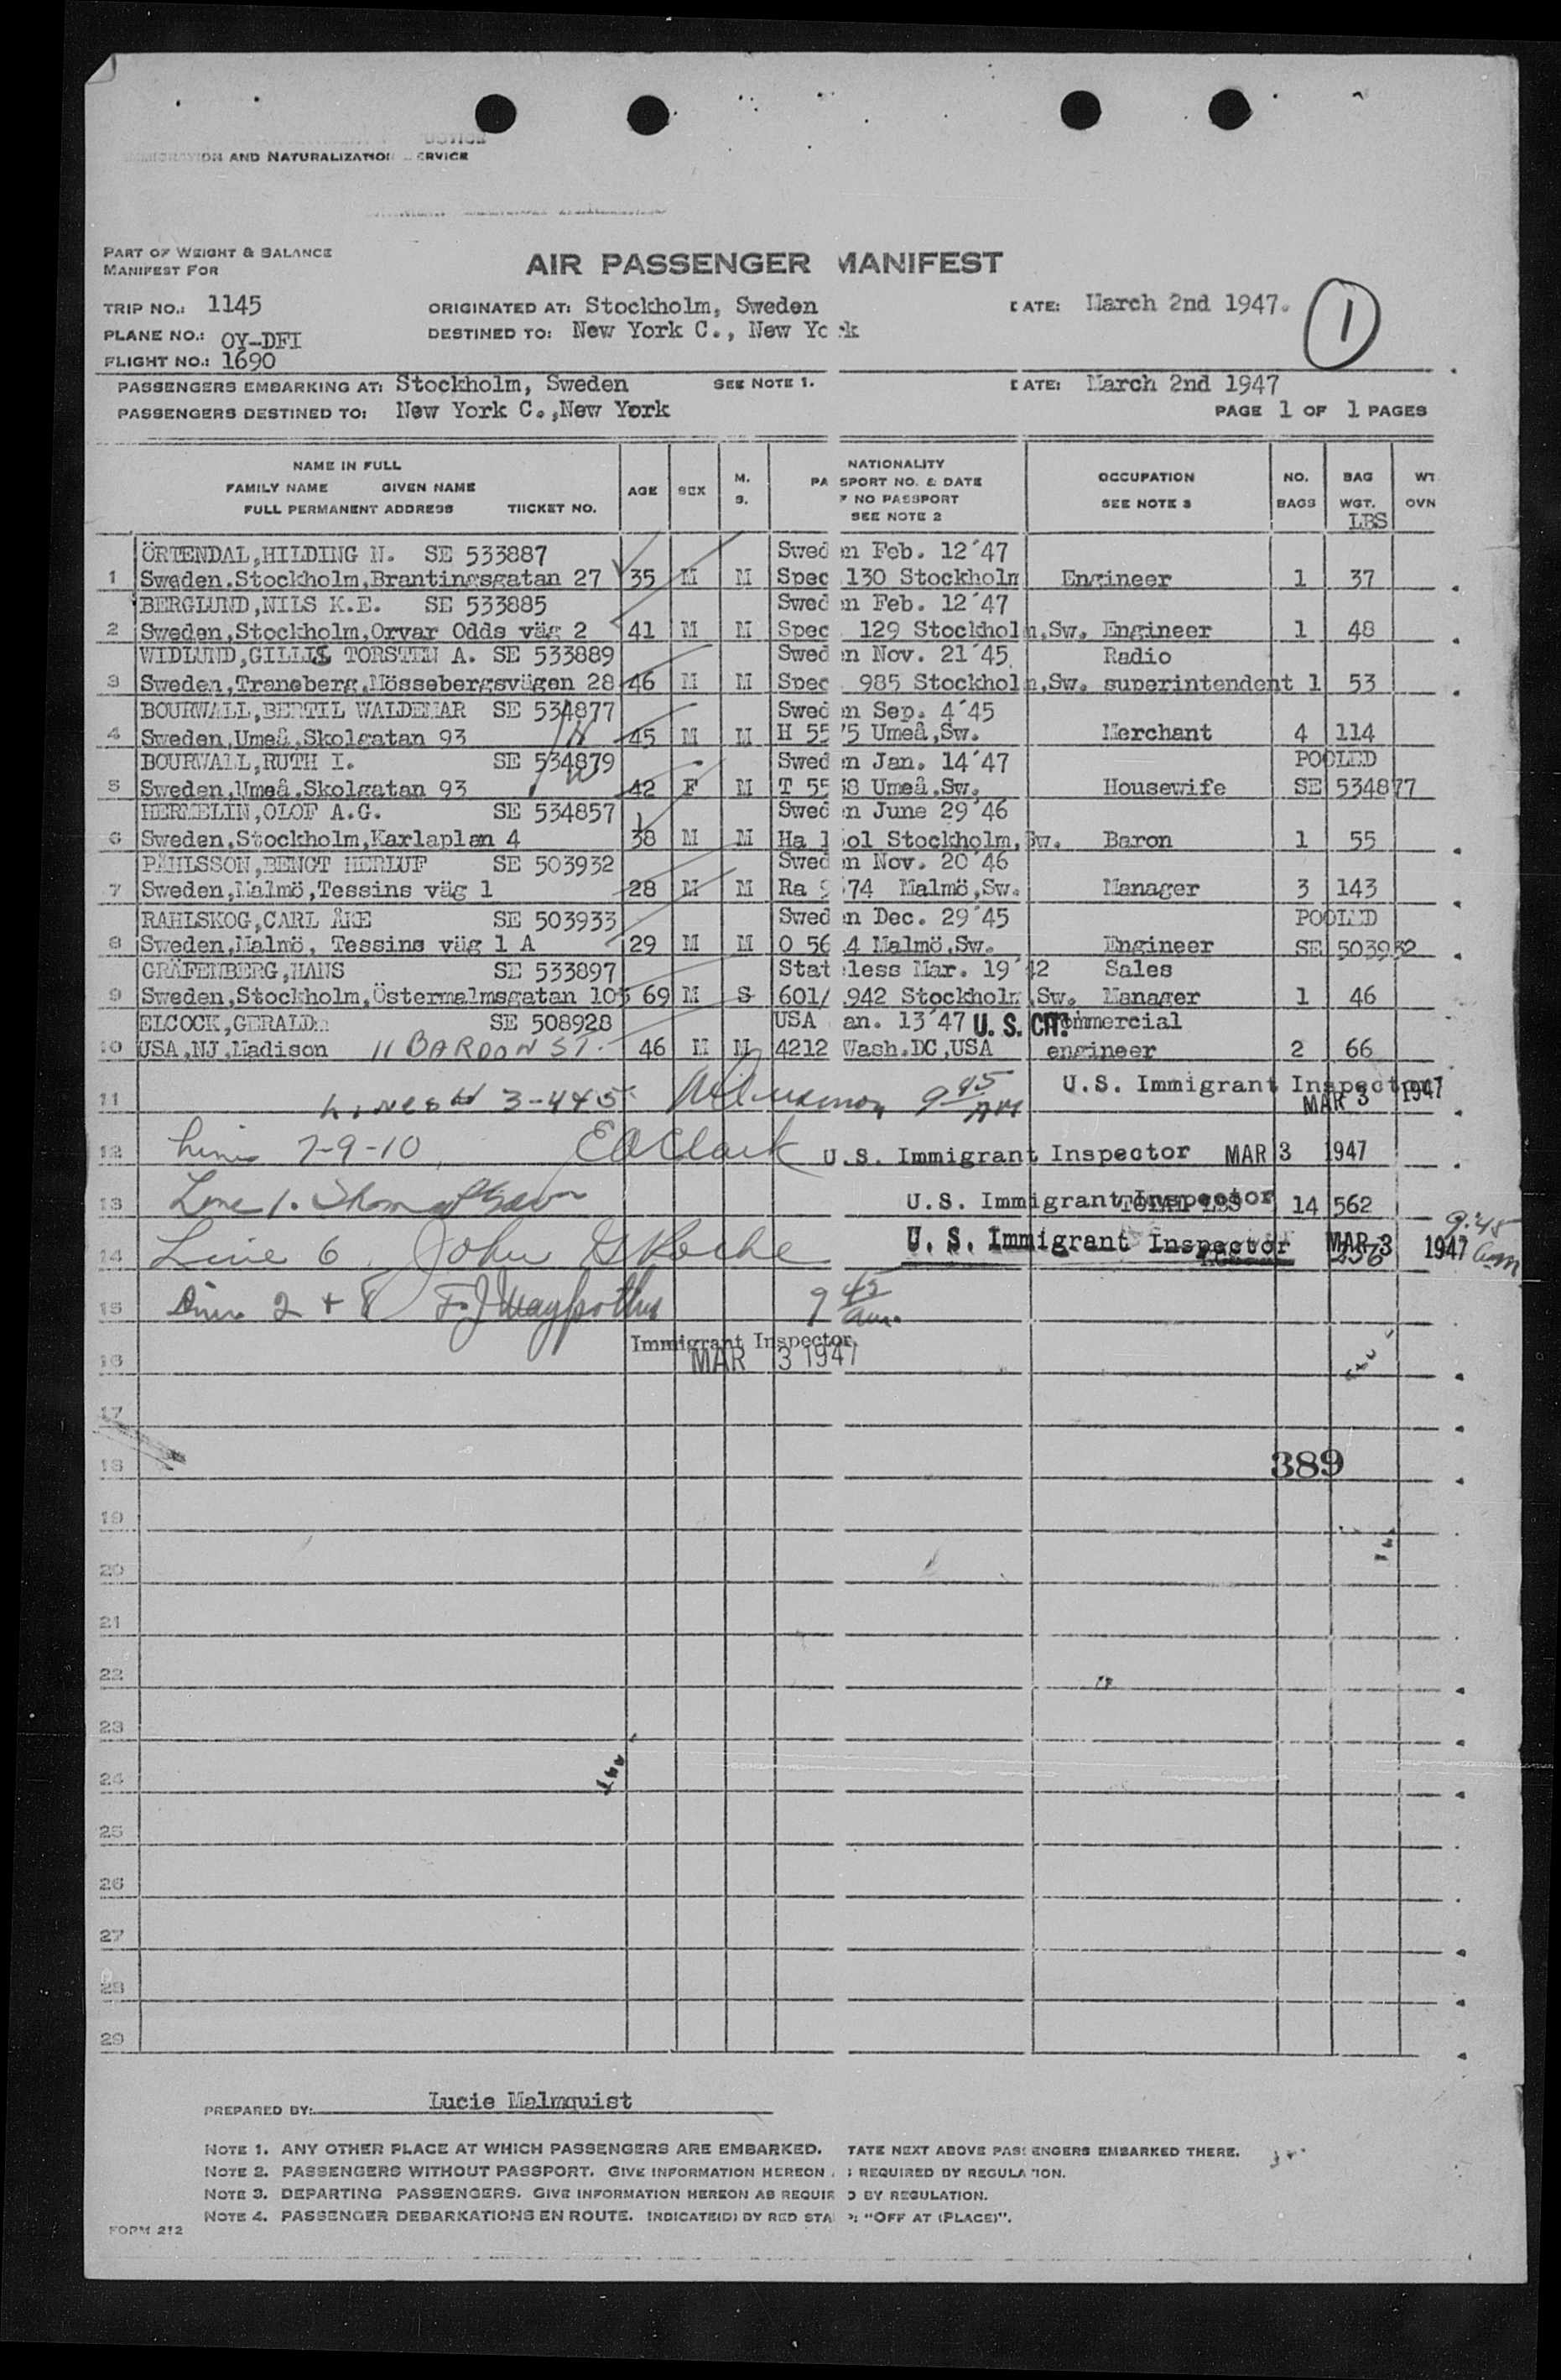 AND NATURALIZATION SERVICE
PART OF WEIGHT & BALANCE
MANIFEST FOR
AIR PASSENGER MANIFEST
TRIP NO.: 1145 ORIGINATED AT: Stockholm, Sweden DATE: March 2nd 1947. 1
PLANE NO.: OY-DFI DESTINED TO: New York C., New York
FLIGHT NO.: 1690
PASSENGERS EMBARKING AT: Stockholm, Sweden SEE NOTE 1. DATE: March 2nd 1947
PASSENGERS DESTINED TO: New York C.,New York PAGE 1 OF 1 PAGES
NAME IN FULL
FAMILY NAME GIVEN NAME
FULL PERMANENT ADDRESS TIICKET NO. AGE SEX M. S. NATIONALITY PASSPORT NO. & DATE NO PASSPORT SEE NOTE 2 OCCUPATION SEE NOTE 3 NO. BAGS BAG WGT. LBS WT OVN
ÖRTENDAL,HILDING N. SE 533887 Sweden Feb. 12'47
1 Sweden.Stockholm,Brantingsgatan 27 35 M M Spec 130 Stockholm Engineer 1 37
BERGLUND,NILS K.E. SE 533885 Sweden Feb. 12'47
2 Sweden,Stockholm,Orvar Odds väg 2 41 M M Spec 129 Stockholm,Sw. Engineer 1 48
WIDLUND,GILLIS TORSTEN A. SE 533889 Sweden Nov. 21'45 Radio
3 Sweden,Traneberg,Mössebergsvägen 28 46 M M Spec 985 Stockholm,Sw. superintendent 1 53
BOURWALL,BERTIL WALDEMAR SE 534877 Sweden Sep. 4'45
4 Sweden,Umeå,Skolgatan 93 45 M M H 5575 Umeå,Sw. Merchant 4 114
BOURWALL,RUTH I. SE 534879 Sweden Jan. 14'47 POOLED
5 Sweden,Umeå,Skolgatan 93 42 F M T 55 8 Umeå,Sw. Housewife SE 534877
HERMELIN,OLOF A.G. SE 534857 Sweden June 29'46
6 Sweden,Stockholm,Karlaplan 4 38 M M Ha Stockholm,Sw. Baron 1 55
PÅHLSSON,BENGT HERLUF SE 503932 Sweden Nov. 20'46
7 Sweden,Malmö,Tessins väg 1 28 M M Ra 9 74 Malmö,Sw. Manager 3 143
RAHLSKOG,CARL ÅKE SE 503933 Sweden Dec. 29'45 POOLED
8 Sweden,Malmö, Tessins väg 1 A 29 M M O 56 4 Malmö,Sw. Engineer SE 503932
GRÄFENBERG,HANS SE 533897 Stateless Mar. 19'42 Sales
9 Sweden,Stockholm,Östermalmsgatan 103 69 M S 601/ 942 Stockholm,Sw. Manager 1 46
ELCOCK,GERALD SE 508928 USA an. 13'47 U. S. CIT. Commercial
10 USA,NJ,Madison 11 BARDON ST. 46 M M 4212 Wash.DC,USA engineer 2 66
11 Lines 3-4+5 9 45 AM U.S. Immigrant Inspector MAR 3 1947
12 Lines 7-9-10 E A Clark U.S. Immigrant Inspector MAR 3 1947
13 Line 1. U.S. Immigrant Inspector 14 562
14 Line 6 John G Roche U. S. Immigrant Inspector MAR 3 1947 9:45 am
15 Lines 2 + 8 9 45 am.
16 Immigrant Inspector.
MAR 3 1947
17
18 389
19
20
21
22
23
24
25
26
27
28
29
PREPARED BY: Lucie Malmquist
NOTE 1. ANY OTHER PLACE AT WHICH PASSENGERS ARE EMBARKED. TATE NEXT ABOVE PASSENGERS EMBARKED THERE.
NOTE 2. PASSENGERS WITHOUT PASSPORT. GIVE INFORMATION HEREON REQUIRED BY REGULATION.
NOTE 3. DEPARTING PASSENGERS. GIVE INFORMATION HEREON AS REQUIRED BY REGULATION.
NOTE 4. PASSENGER DEBARKATIONS EN ROUTE. INDICATE(D) BY RED STA P: "OFF AT (PLACE)".
FORM 212